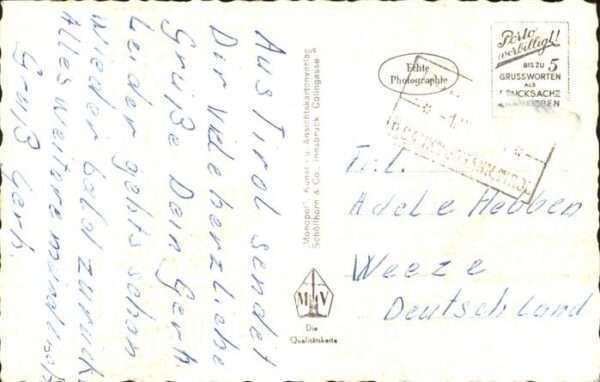 Aus Tirol sendet
Dir viele herzliche
Grüße Dein Gerh.
Leider gehts schon
wieder bald zurück.
Alles weitere mündlich
Gruß Gerh.
Monopol, Kunst- u. Ansichtskartenverlag
Schöllhorn & Co., Innsbruck, Colingasse 3
M V
Die
Qualitätskarte
Echte
Photographie
Porto
verbilligt!!
BIS ZU 5
GRUSSWORTEN
ALS
DRUCKSACHE
Frl.
Adele Hebben
Weeze
Deutschland